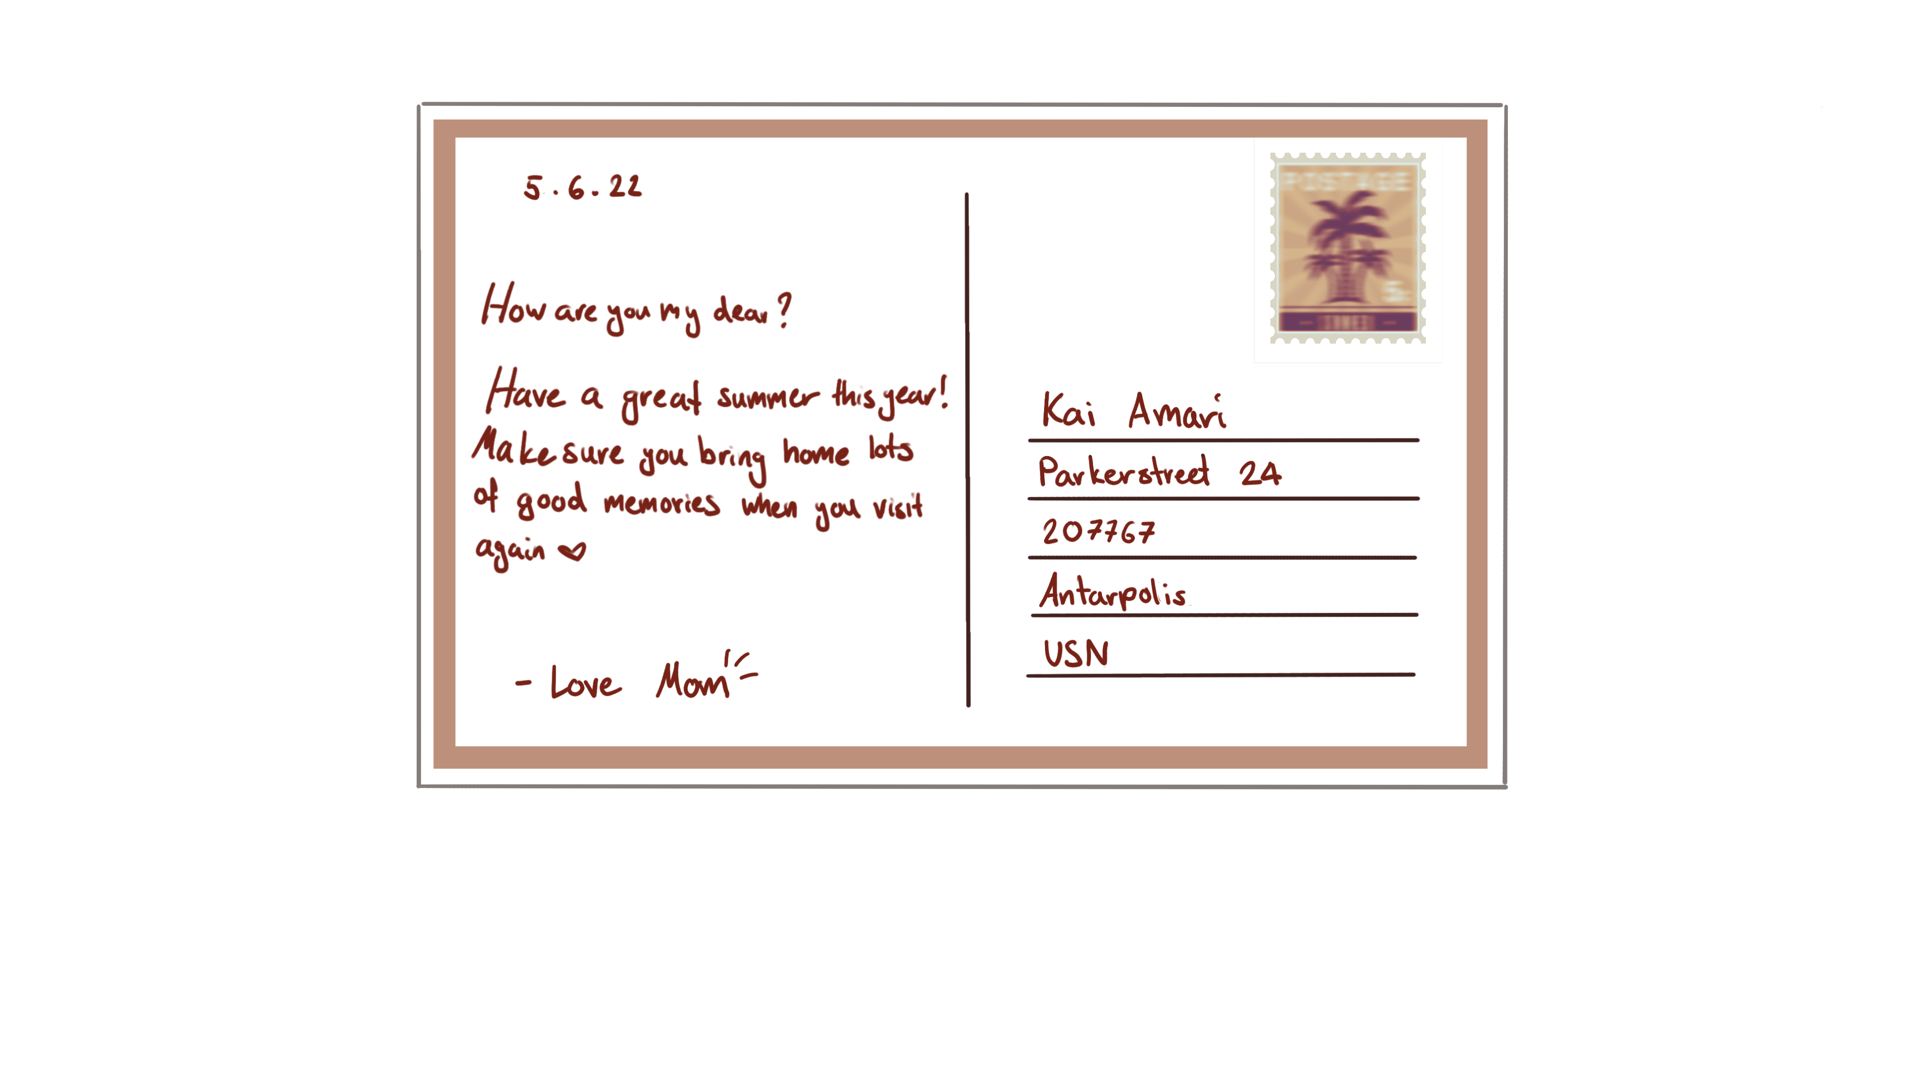 5.6.22
How are you my dear?
Have a great summer this year!
Make sure you bring home lots
of good memories when you visit
again ♥
- Love Mom
POSTAGE
Kai Amari
Parkerstreet 24
207767
Antarpolis
USN